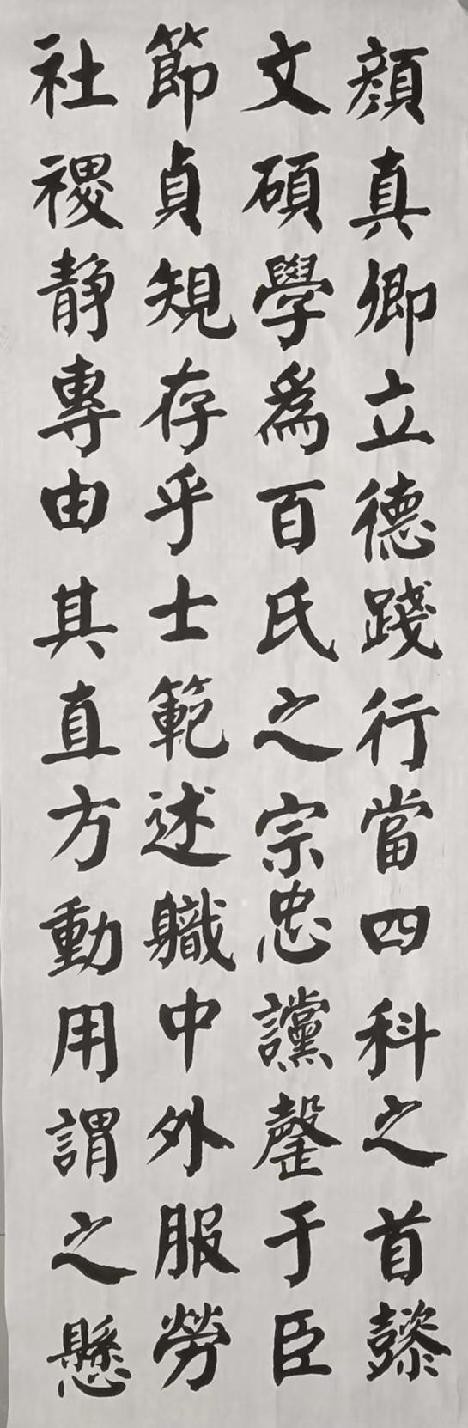 顔真卿立德踐行當四科之首懿
文碩學為百氏之宗忠讜罄于臣
節貞規存乎士範述職中外服勞
社稷静專由其直方動用謂之懸